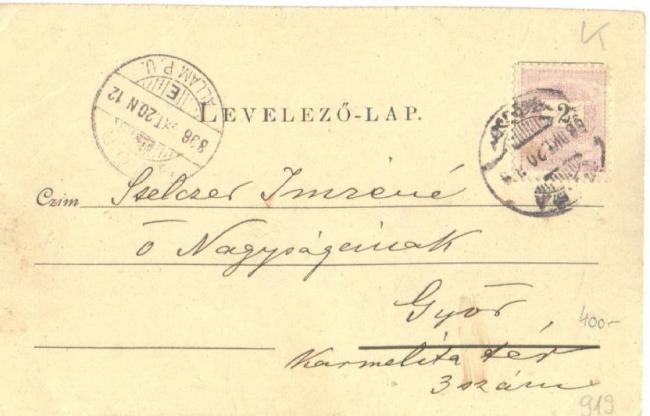 K
LEVELEZŐ-LAP.
ÁLLAM P. U.
E
898 OKT. 20 N 12
2
98 OKT. 20
Czim Szelczer Imréné
ő Nagyságának
Győr
400-
Karmelita tér
3 szám
919